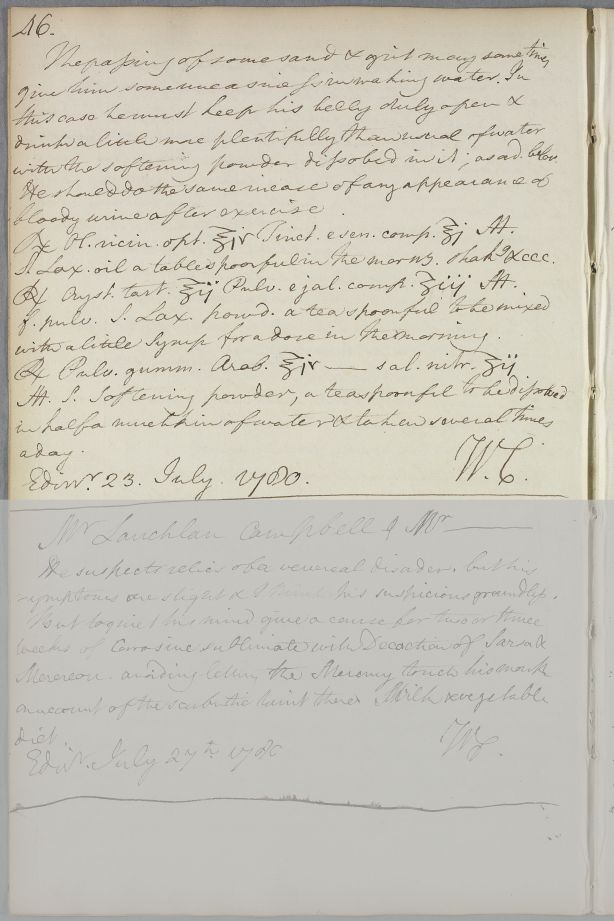 46.
The passing of some sand & grit may sometimes
give him some uneasiness in making water. In
this case he must keep his belly duly open &
drink a little more plentifully than usual of water
with the softening powder dissolved in it; as ad. below.
He should do the same in case of any appearance of
bloody urine after exercise.
℞ Ol. ricin. opt. ℥iv Tinct. e sen. comp. ℥j M.
S. Lax. oil a tablespoonful in the morng.
℞ Cryst. tart. ℥ij Pulv. e jal. comp. ʒiij M.
f. pulv. S. Lax. powd. a teaspoonful to be mixed
with a little Syrup for a dose in the morning.
℞ Pulv. gumm. Arab. ℥iv — sal. nitr. ʒij
M. S. Softening powder, a teaspoonful to be dissolved
in half a mutchkin of water & taken several times
a day.
Edinr. 23. July. 1780. W.C.
Mr Lauchlan Campbell of Mr
He suspects relics of a venereal disorder. but his
symptoms are slight & I think his suspicions groundless.
But to quiet his mind give a course for two or three
weeks of Corrosive sublimate with Decoction of Sarsa &
Mezereon. avoiding letting the Mercury touch his mouth
on account of the scorbutic taint there. Milk & vegetable
diet.
Edinr. July 27th 1780 WC.